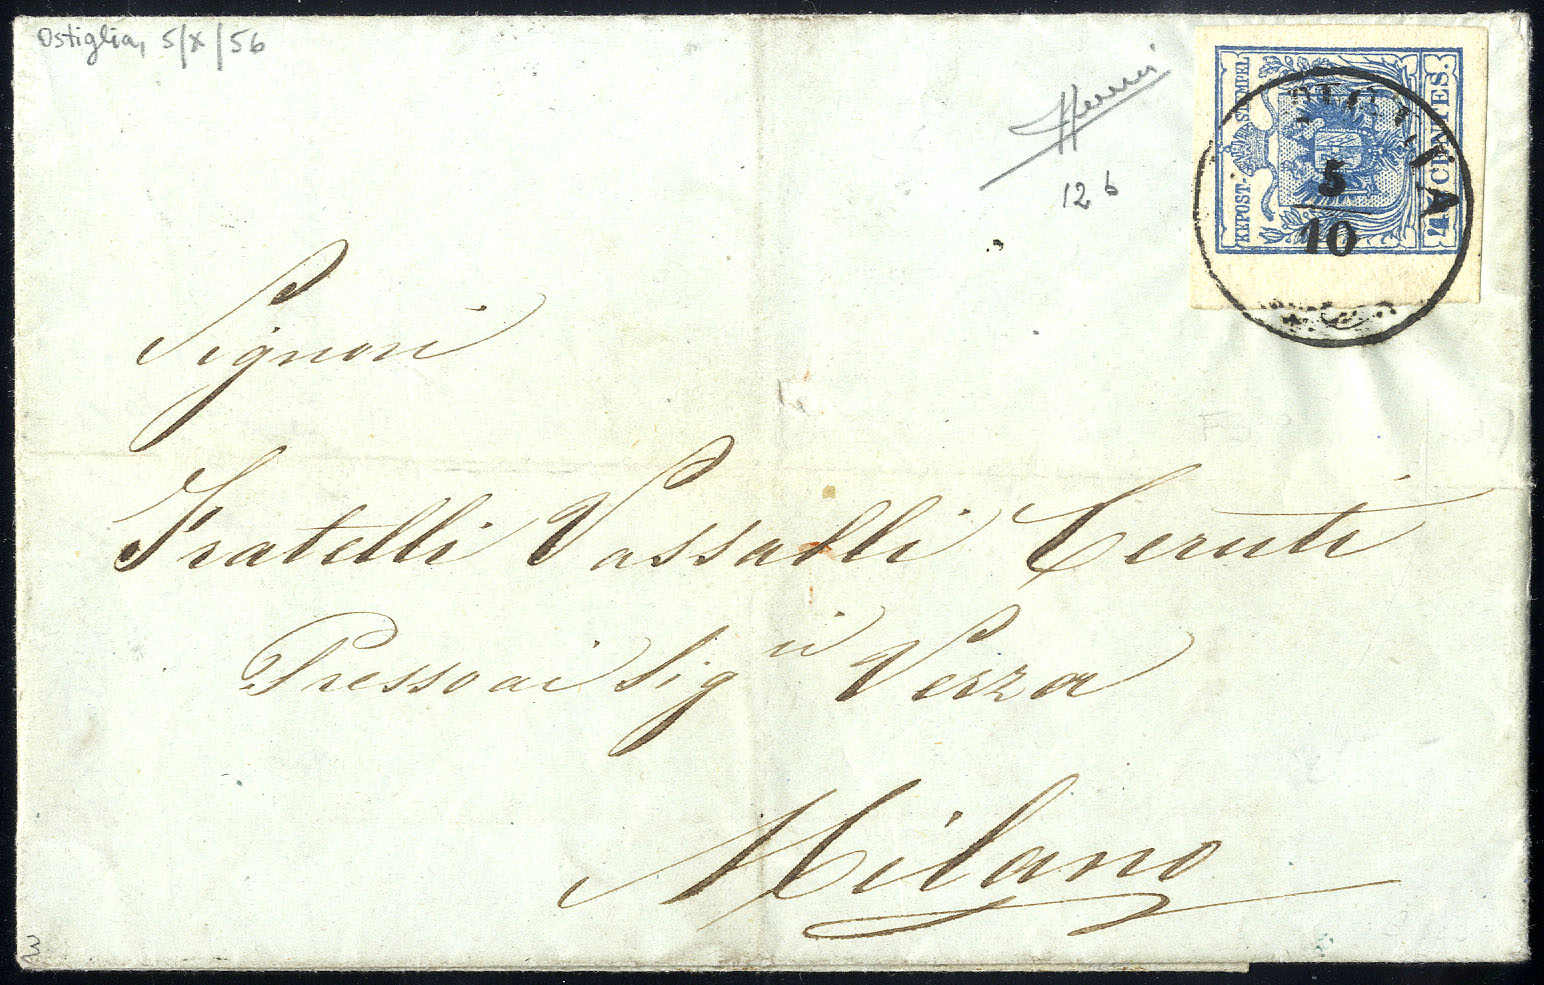 Ostiglia, 5/X/56
12 b
KKPOST-STEMPEL
5
10
45 CENTES.
Signori
Fratelli Vassalli Ceruti
Presso ai Sig.ri Verza
Milano